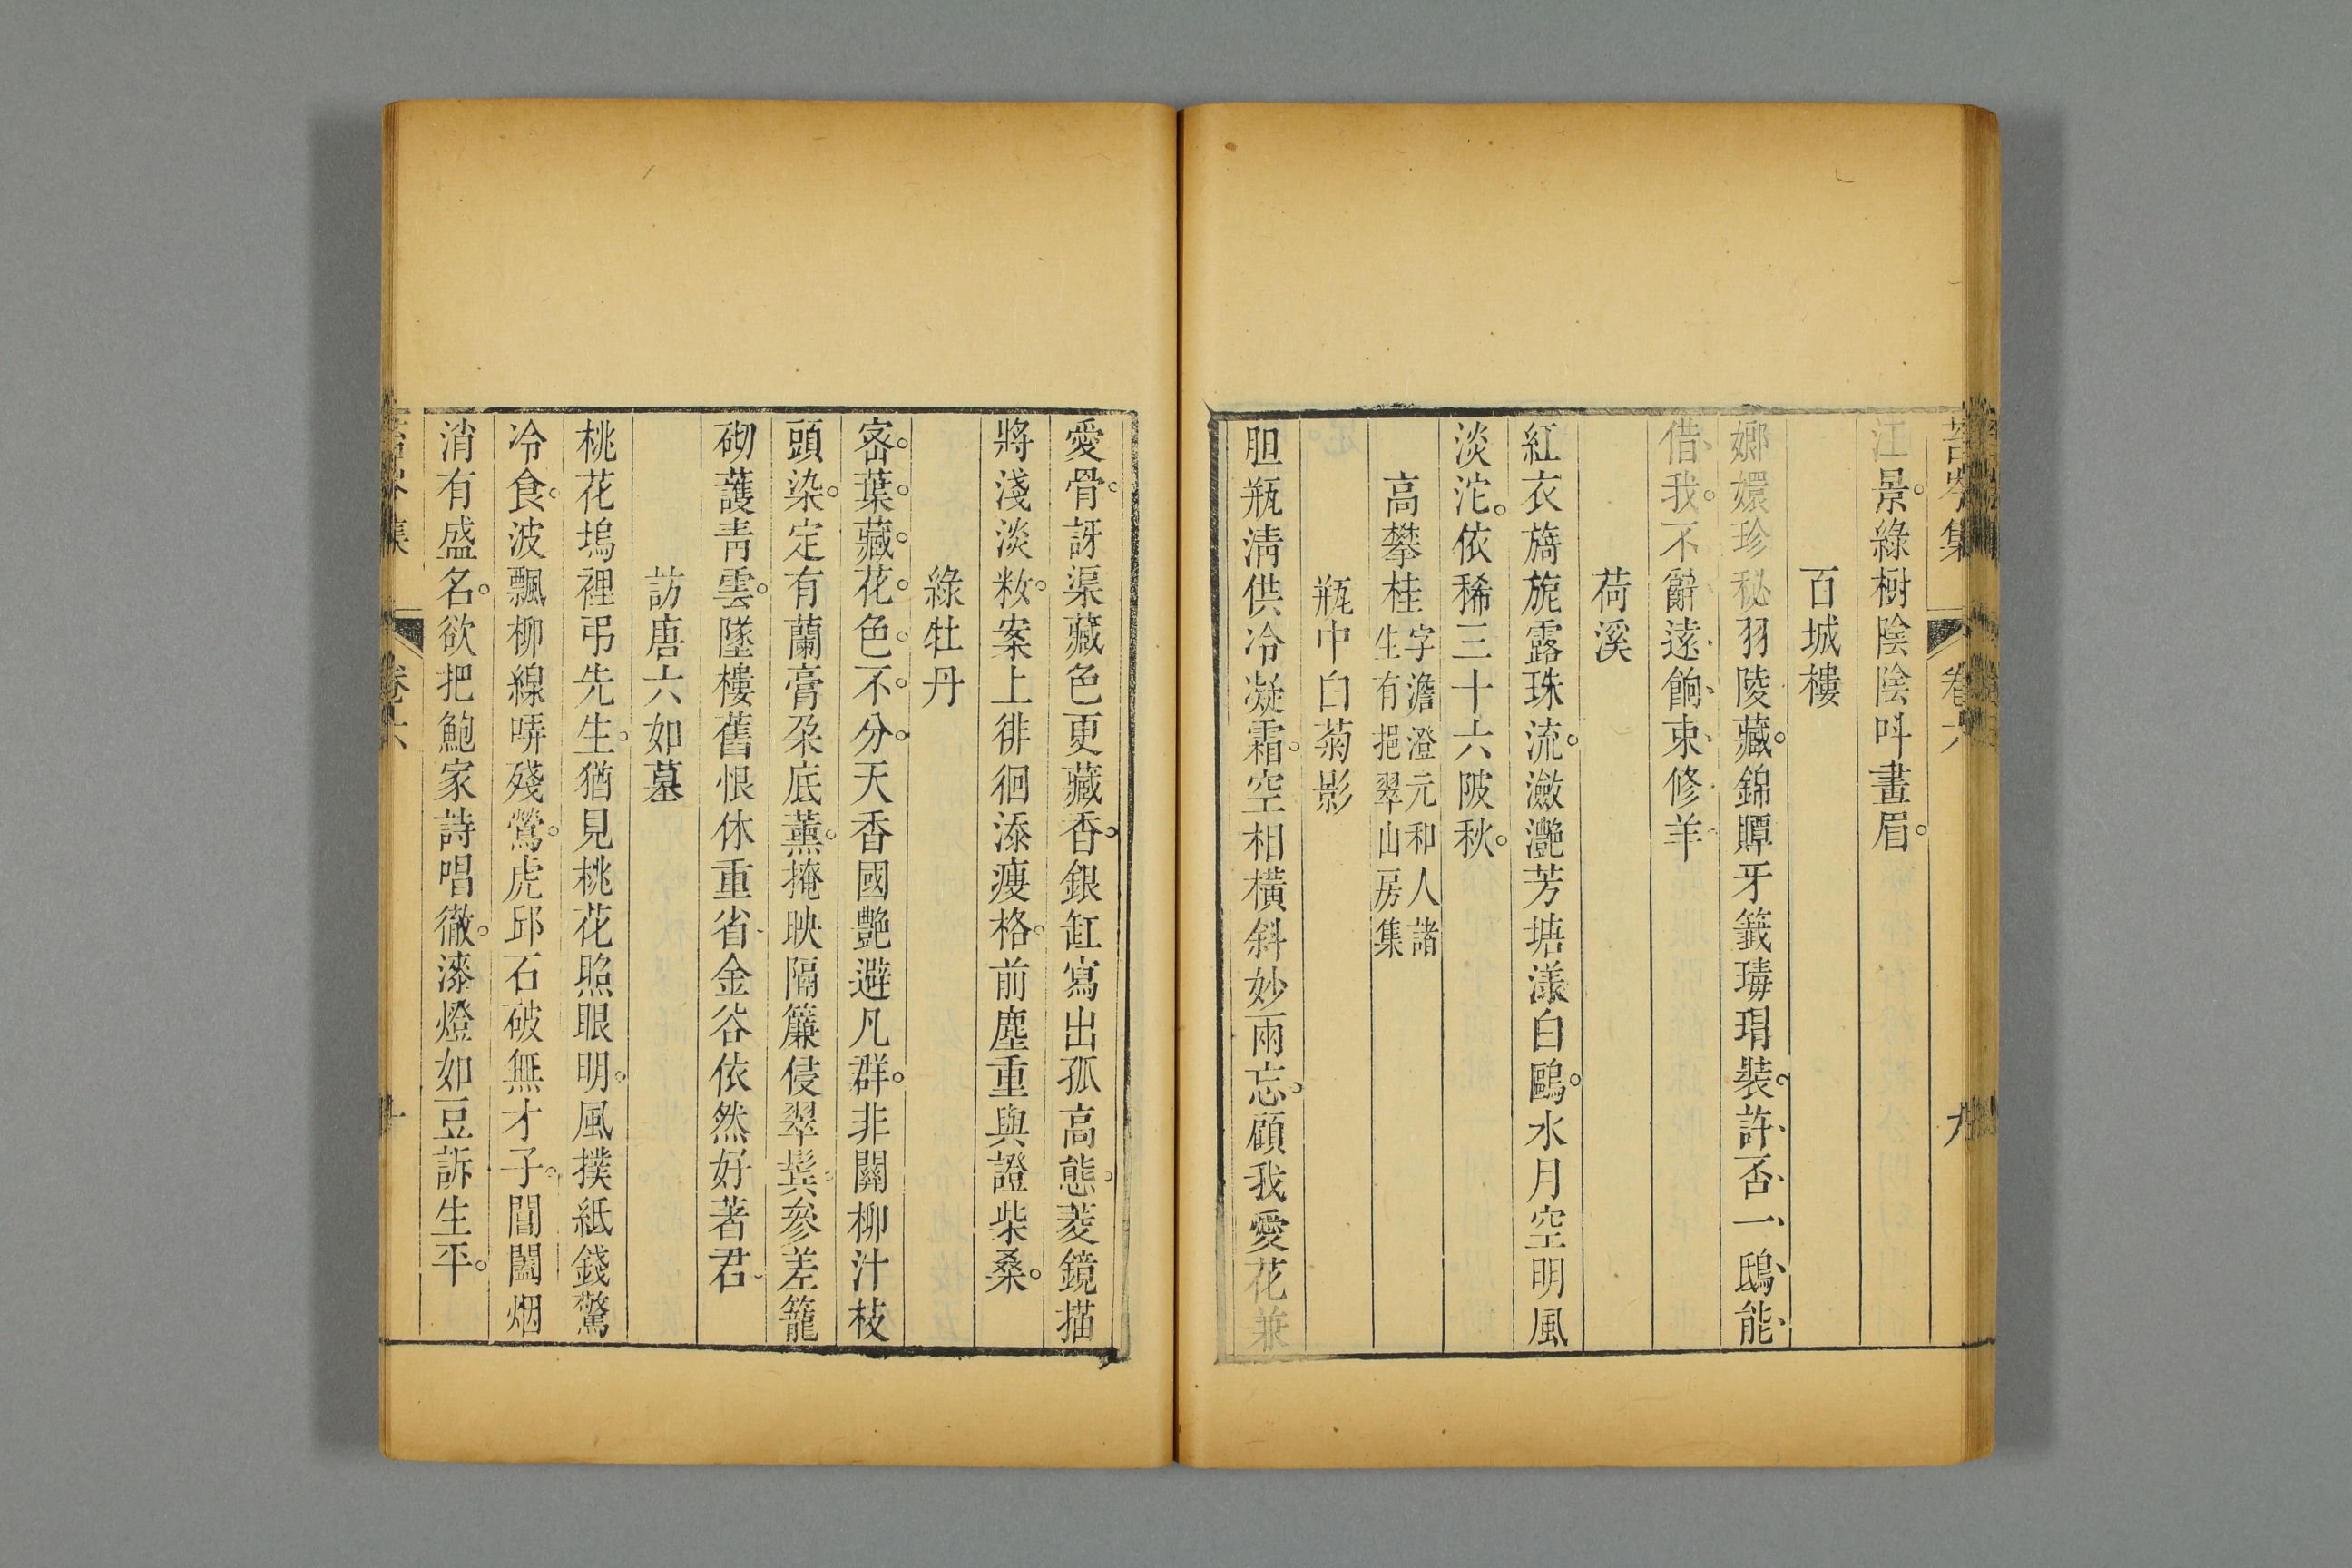 苔岑集 卷六 九
江景綠樹陰陰呌畫眉
百城樓
嫏嬛珍秘羽陵藏錦贉牙籖瑇瑁裝許否一鴟能
借我不辭遠餉束修羊
荷溪
紅衣旖旎露珠流瀲灩芳塘漾白鷗水月空明風
淡沱依稀三十六陂秋
高攀桂字澹澄元和人諸
生有挹翠山房集
瓶中白菊影
胆瓶淸供冷凝霜空相橫斜妙兩忘顧我愛花兼
愛骨訝渠藏色更藏香銀缸寫出孤高態菱鏡描
將淺淡籹案上徘徊添瘦格前塵重與證柴桑
綠牡丹
宻葉藏花色不分天香國艷避凡群非關柳汁枝
頭染定有蘭膏朶底薰掩映隔簾侵翠鬂參差籠
砌護靑雲墜樓舊恨休重省金谷依然好著君
訪唐六如墓
桃花塢裡弔先生猶見桃花照眼明風撲紙錢驚
冷食波飄柳線哢殘鶯虎邱石破無才子閶闔烟
消有盛名欲把鮑家詩唱徹漆燈如豆訴生平
集 卷六 十